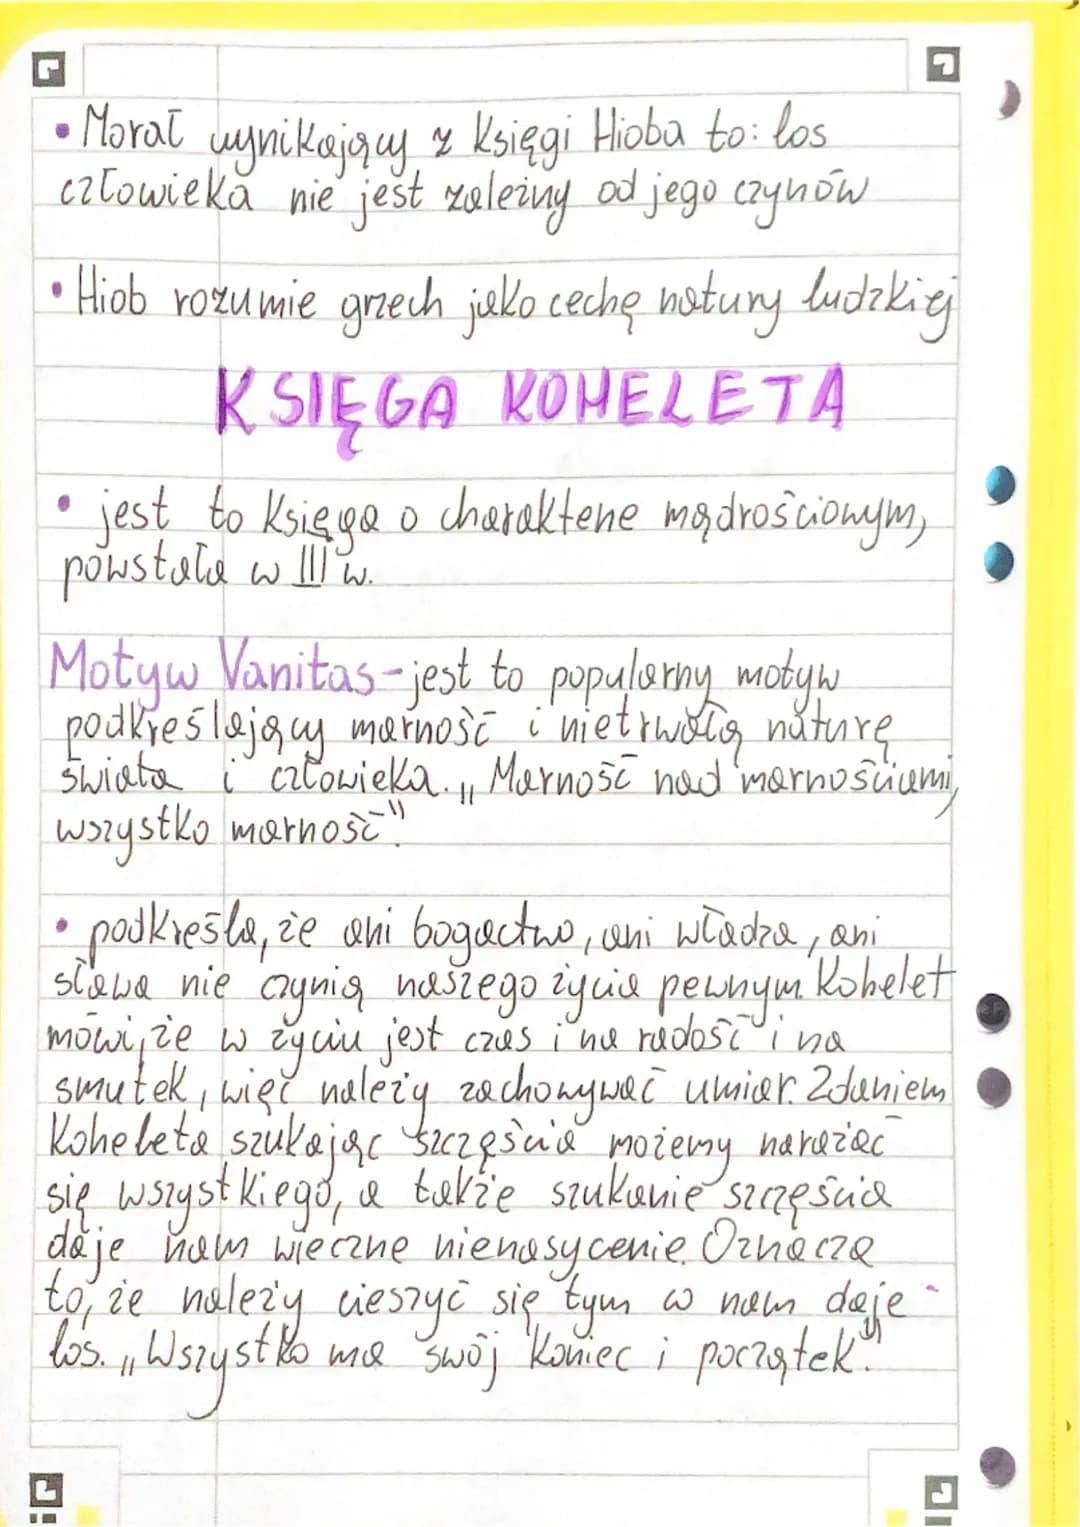 • Morał wynikający z Księgi Hioba to: los
człowieka nie jest zależny od jego czynów
• Hiob rozumie grzech jako cechę natury ludzkiej
KSIĘGA KOHELETA
• jest to Księga o charakterze mądrościowym,
powstała w III w.
Motyw Vanitas - jest to popularny motyw
podkreślający marność i nietrwałą naturę
świata i człowieka. „Marność nad marnościami,
wszystko marność".
• podkreśla, że ani bogactwo, ani władza, ani
sława nie czynią naszego życia pewnym. Kohelet
mówi, że w życiu jest czas i na radość i na
smutek, więc należy zachowywać umiar. Zdaniem
Koheleta szukając szczęścia możemy narażać
się wszystkiego, a także szukanie szczęścia
daje nam wieczne nienasycenie. Oznacza
to, że należy cieszyć się tym w nam daje
los. „Wszystko ma swój koniec i początek."